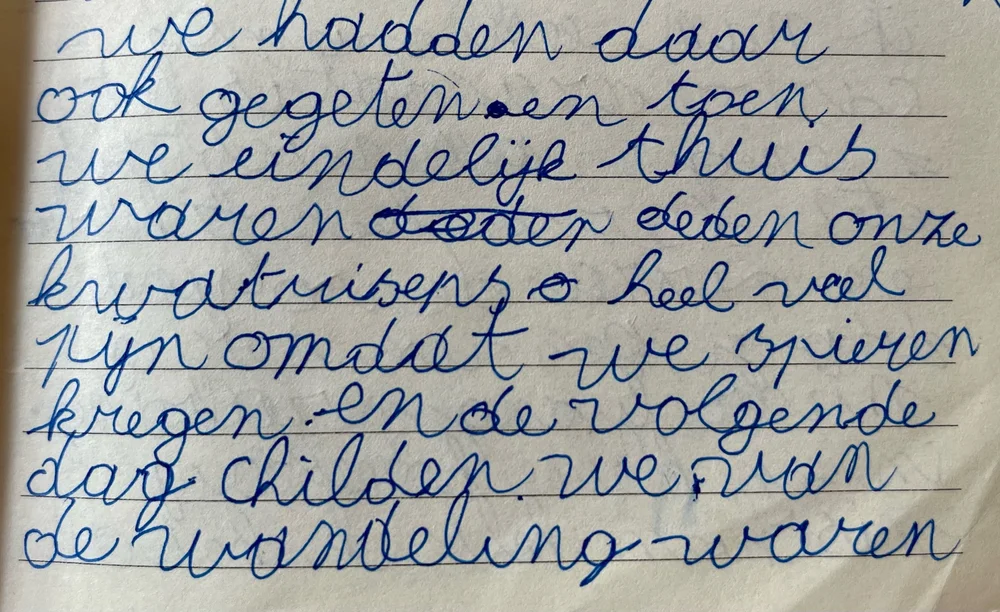 we hadden daar
ook gegeten. en toen
we eindelijk thuis
waren deden onze
heel veel
pijn omdat we spieren
kregen. en de volgende
dag childen we van
de wandeling waren